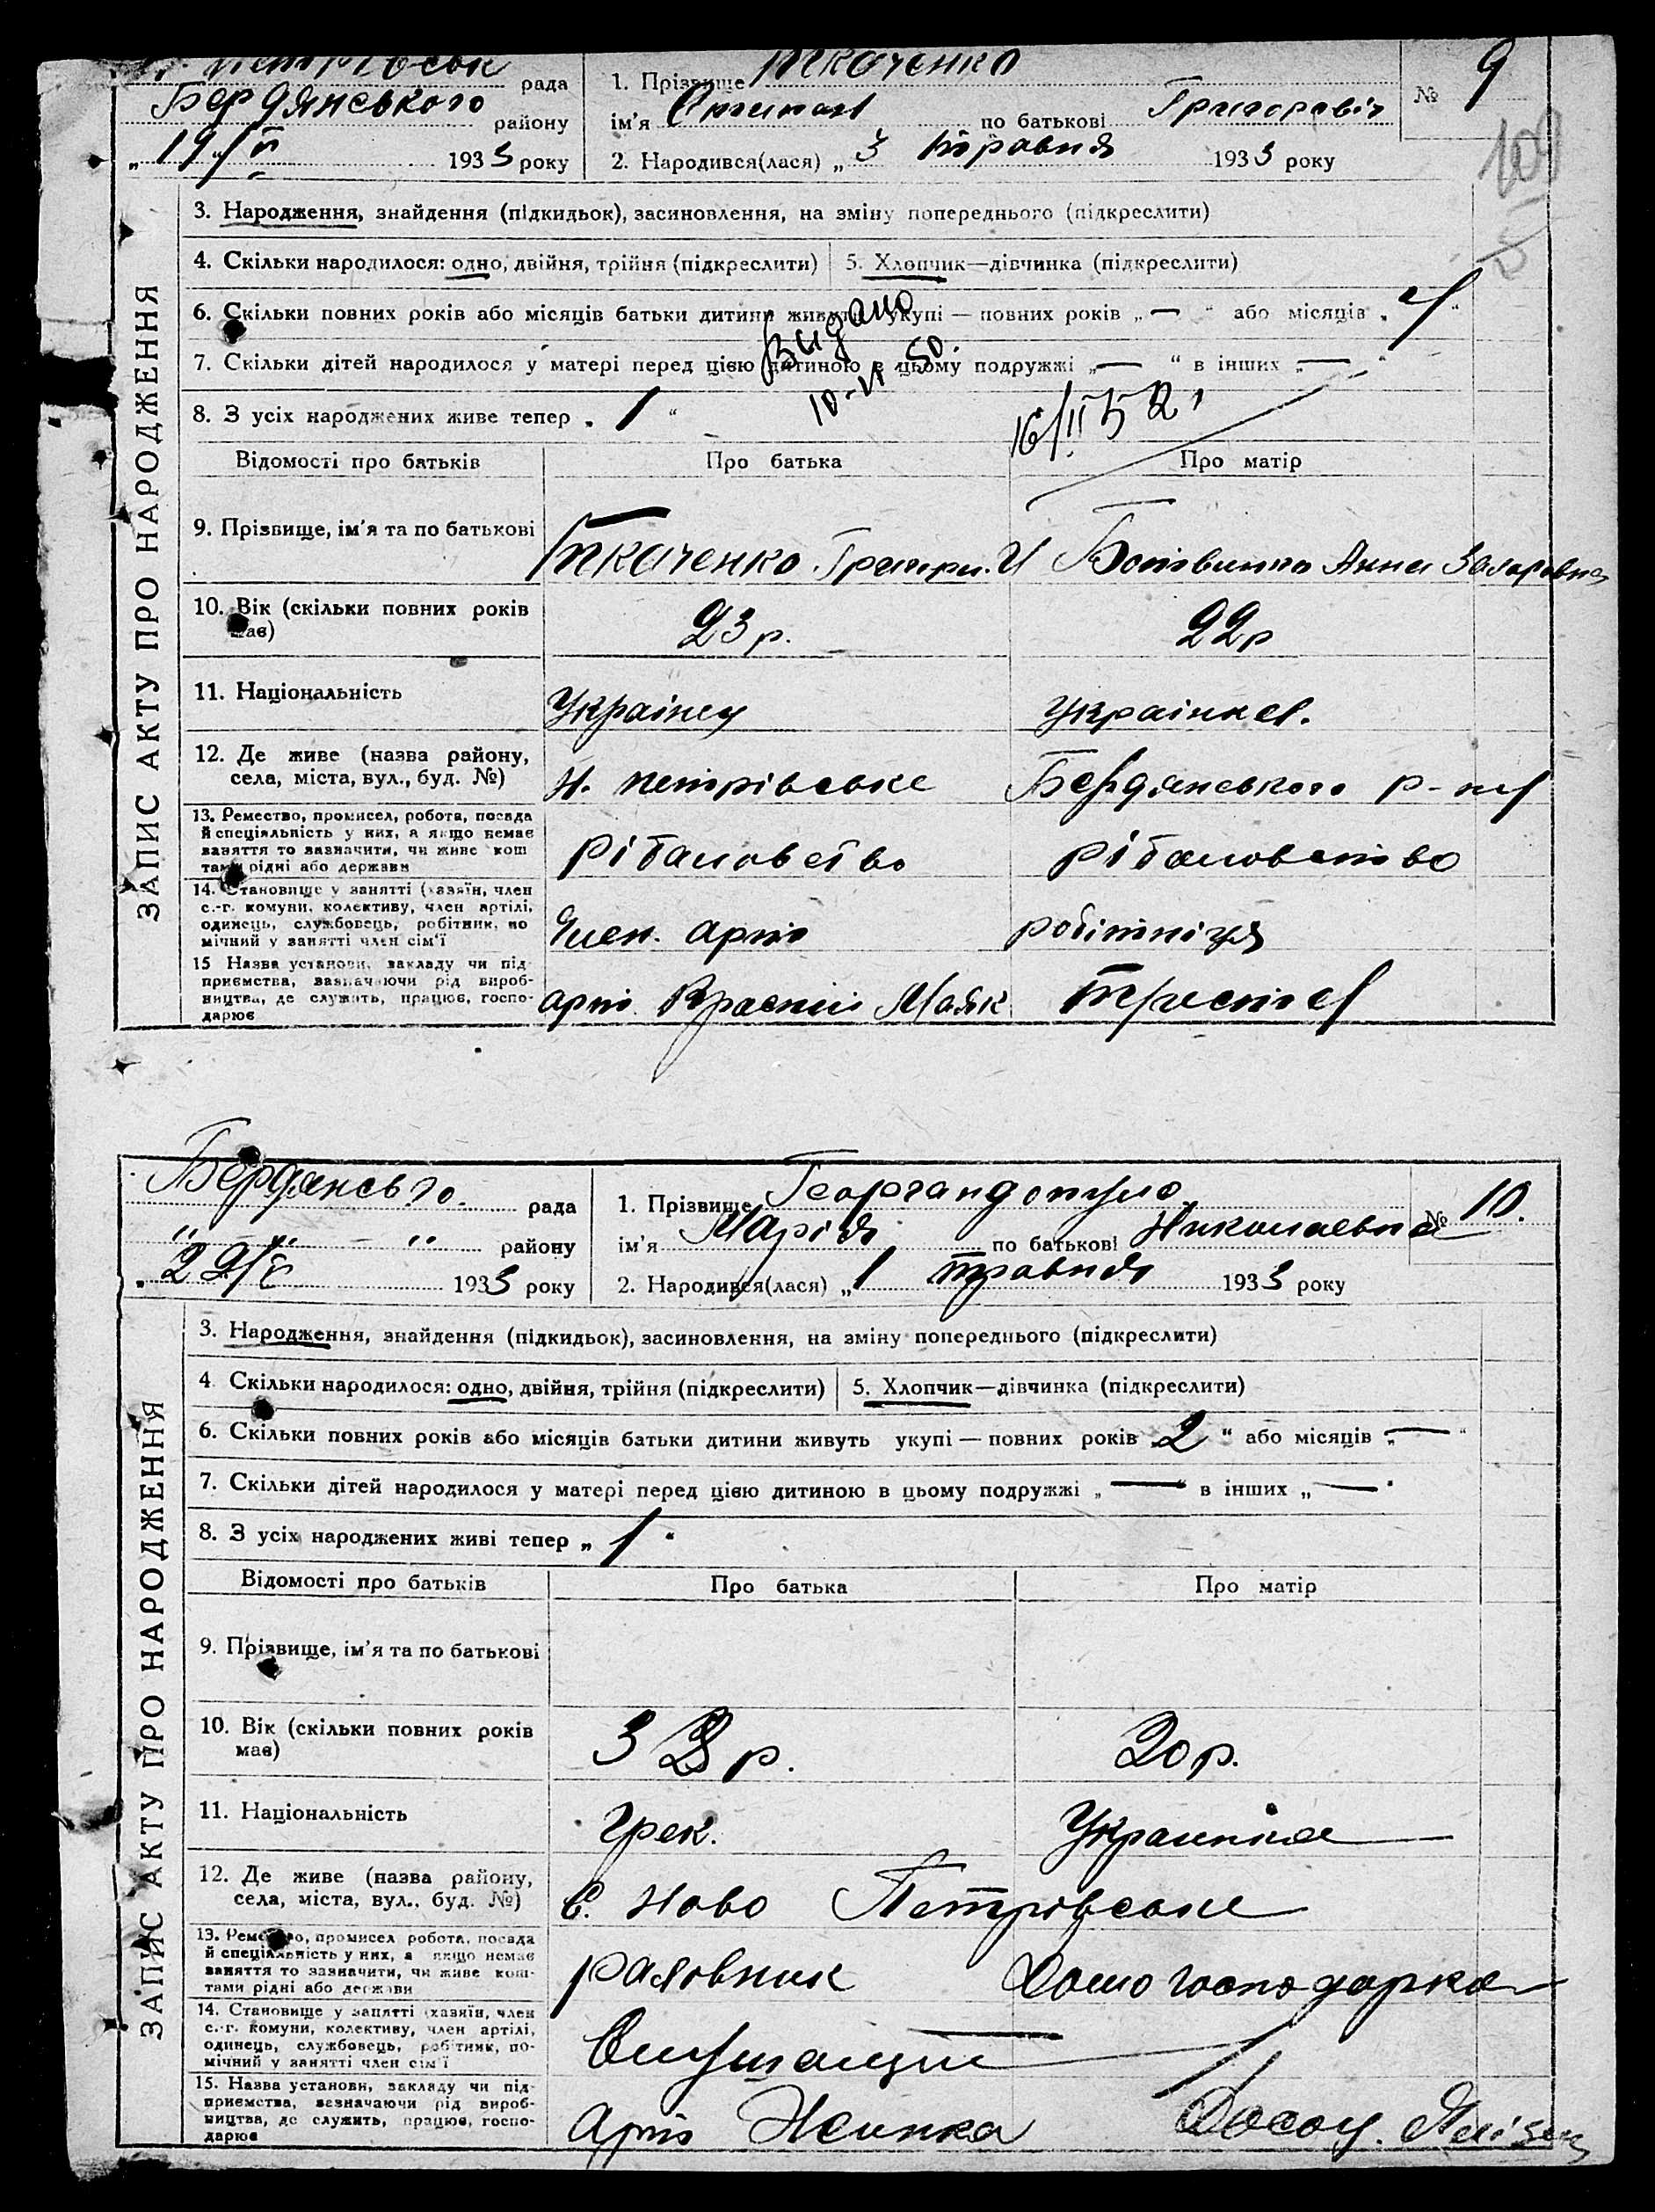 рада
Бердянського району
„19/V 1933 року
1. Прізвище Ткаченко
ім'я Степан по батькові Григоровіч
2. Народився(лася) „3 травня 1933 року
№ 9
109
3. Народження, знайдення (підкидьок), засиновлення, на зміну попереднього (підкреслити)
4. Скільки народилося: одно, двійня, трійня (підкреслити)
5. Хлопчик—дівчинка (підкреслити)
6. Скільки повних років або місяців батьки дитини живуть укупі — повних років „—" або місяців „
7. Скільки дітей народилося у матері перед цією дитиною в цьому подружжі „—" в інших „—"
Видано
10-VI 50.
8. З усіх народжених живе тепер „1"
16/II 52
Відомості про батьків
Про батька
Про матір
9. Прізвище, ім'я та по батькові
Ткаченко Григри. И
Ботвинко Анна Захаровна
10. Вік (скільки повних років має)
23 р.
22 р
11. Національність
Украінец
украінка.
12. Де живе (назва району,
села, міста, вул., буд. №)
Н. петрівське
Бердянського р-на
13. Ремество, промисел, робота, посада
й спеціяльність у них, а якщо немає
заняття то зазначити, чи живе кош
тами рідні або держави
рібаловство
рібаловство
14. Становище у занятті (хазяїн, член
с.-г. комуни, колективу, член артілі,
одинець, службовець, робітник, по
мічний у занятті член сім'ї
Член. арті
робітніця
15 Назва установи, закладу чи під-
приємства, зазначаючи рід вироб-
ництва, де служить, працює, госпо-
дарює
арті. Красний Маяк
Треста
ЗАПИС АКТУ ПРО НАРОДЖЕННЯ
Бердянсьго. рада
" " району
„22/V 1933 року
1. Прізвище Георгандопуло
ім'я Марія по батькові Николаевна
2. Народився(лася) „1 травня 1933 року
№ 10.
3. Народження, знайдення (підкидьок), засиновлення, на зміну попереднього (підкреслити)
4. Скільки народилося: одно, двійня, трійня (підкреслити)
5. Хлопчик—дівчинка (підкреслити)
6. Скільки повних років або місяців батьки дитини живуть укупі — повних років 2" або місяців „—"
7. Скільки дітей народилося у матері перед цією дитиною в цьому подружжі „—" в інших „—"
8. З усіх народжених живі тепер „1"
Відомості про батьків
Про батька
Про матір
9. Прізвище, ім'я та по батькові
10. Вік (скільки повних років
має)
32 р.
20 р.
11. Національність
Грек.
Украинка
12. Де живе (назва району,
села, міста, вул., буд. №)
С. Ново Петрівське
13. Ремество, промисел робота, посада
й спеціяльність у них, а якщо немає
заняття то зазначити, чи живе кош-
тами рідні або держави
раховник
Домогосподарка
14. Становище у занятті (хазяїн, член
с.-г. комуни, колективу, член артілі,
одинець, службовець, робітник, по-
мічний у занятті член сім'ї
Служащи
15. Назва установи, закладу чи під-
приємства, зазначаючи рід вироб-
ництва, де служить, працює, госпо-
дарює
Арті
ЗАПИС АКТУ ПРО НАРОДЖЕННЯ